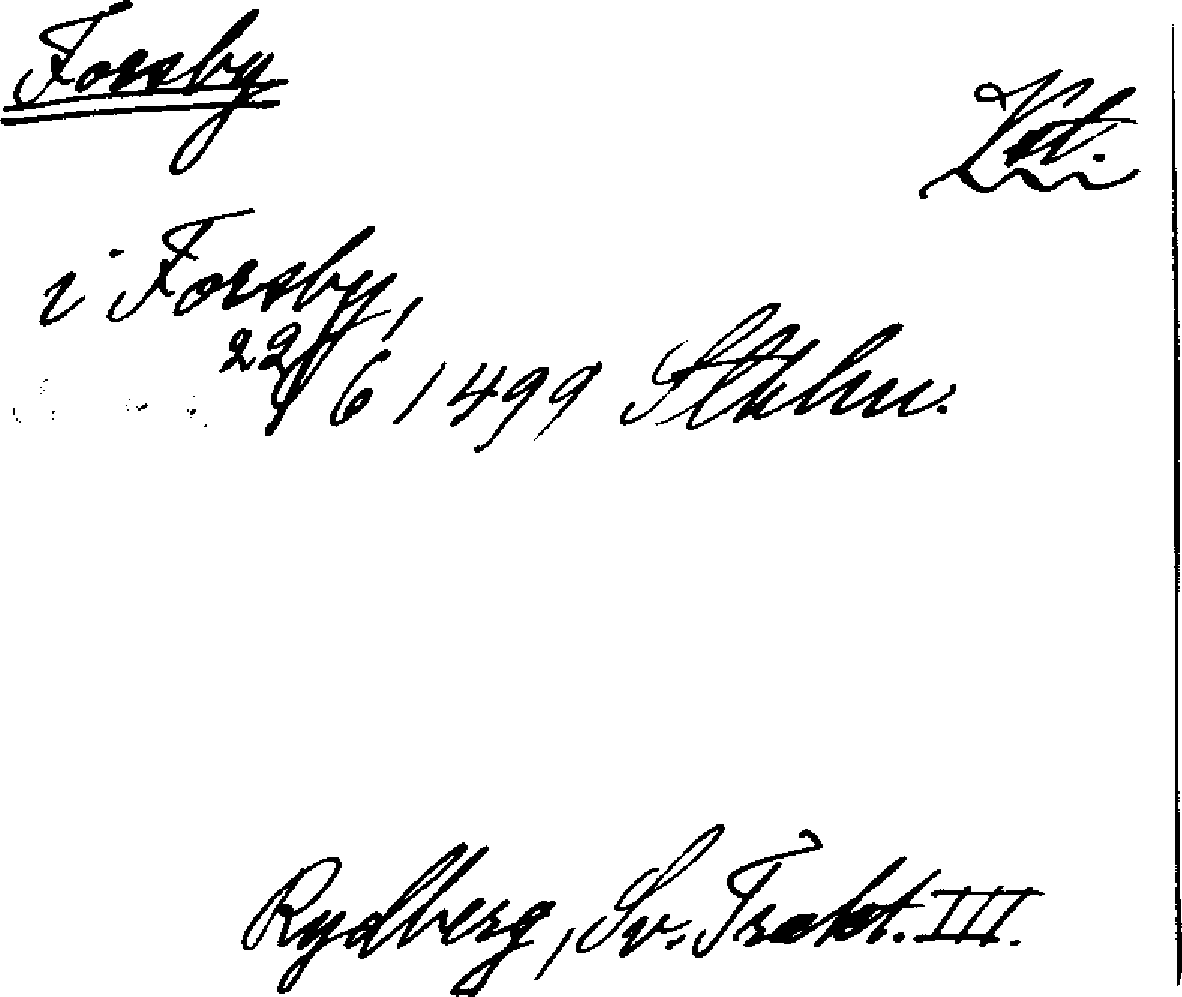 Forsby
Kt.
i Forsby,
22/6 1499 Sthlm.
Rydberg, Sv. Trakt. III.